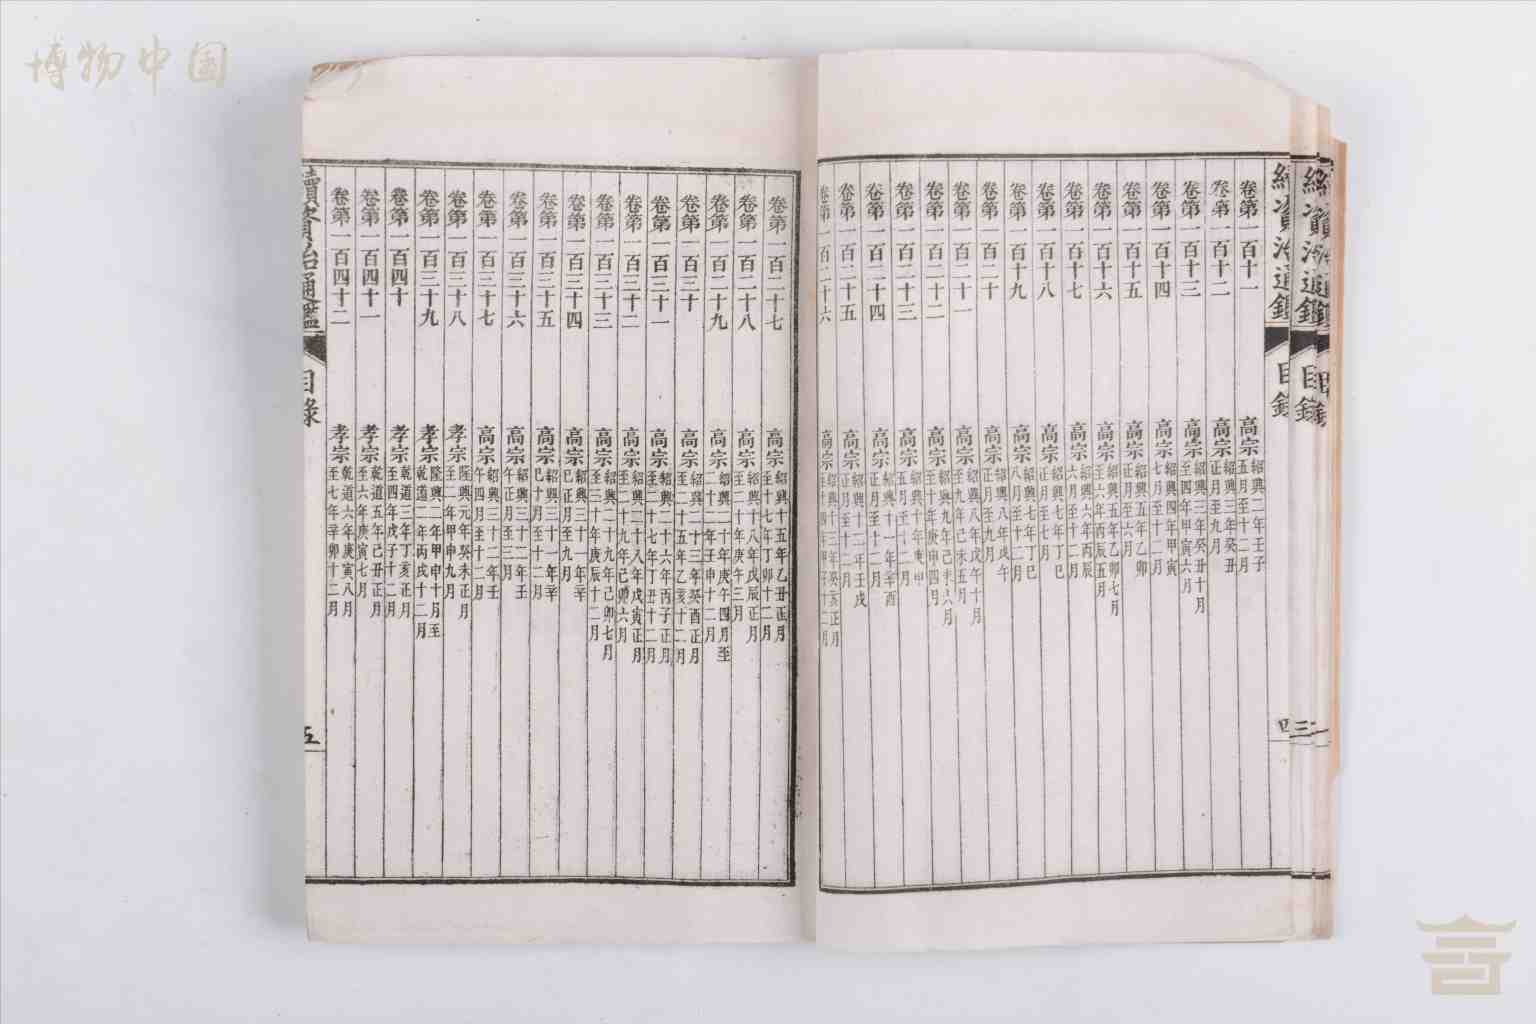 博物中国
續資治通鑑 目錄
續資治通鑑 目錄 三
續資治通鑑 目錄 四
卷第一百十一 高宗 紹興二年壬子五月至十二月
卷第一百十二 高宗 紹興三年癸丑正月至九月
卷第一百十三 高宗 紹興三年癸丑十月至四年甲寅六月
卷第一百十四 高宗 紹興四年甲寅七月至十二月
卷第一百十五 高宗 紹興五年乙卯正月至六月
卷第一百十六 高宗 紹興五年乙卯七月至六年丙辰五月
卷第一百十七 高宗 紹興六年丙辰六月至十二月
卷第一百十八 高宗 紹興七年丁巳正月至七月
卷第一百十九 高宗 紹興七年丁巳八月至十二月
卷第一百二十 高宗 紹興八年戊午正月至九月
卷第一百二十一 高宗 紹興八年戊午十月至九年己未五月
卷第一百二十二 高宗 紹興九年己未六月至十年庚申四月
卷第一百二十三 高宗 紹興十年庚申五月至十二月
卷第一百二十四 高宗 紹興十一年辛酉正月至十二月
卷第一百二十五 高宗 紹興十二年壬戌正月至十二月
卷第一百二十六 高宗 紹興十三年癸亥正月至十四年甲子十二月
卷第一百二十七 高宗 紹興十五年乙丑正月至十七年丁卯十二月
卷第一百二十八 高宗 紹興十八年戊辰正月至二十年庚午三月
卷第一百二十九 高宗 紹興二十年庚午四月至二十二年壬申十二月
卷第一百三十 高宗 紹興二十三年癸酉正月至二十五年乙亥十二月
卷第一百三十一 高宗 紹興二十六年丙子正月至二十七年丁丑十二月
卷第一百三十二 高宗 紹興二十八年戊寅正月至二十九年己卯六月
卷第一百三十三 高宗 紹興二十九年己卯七月至三十年庚辰十二月
卷第一百三十四 高宗 紹興三十一年辛巳正月至九月
卷第一百三十五 高宗 紹興三十一年辛巳十月至十二月
卷第一百三十六 高宗 紹興三十二年壬午正月至三月
卷第一百三十七 高宗 紹興三十二年壬午四月至十二月
卷第一百三十八 孝宗 隆興元年癸未正月至二年甲申九月
卷第一百三十九 孝宗 隆興二年甲申十月至乾道二年丙戌十二月
卷第一百四十 孝宗 乾道三年丁亥正月至四年戊子十二月
卷第一百四十一 孝宗 乾道五年己丑正月至六年庚寅七月
卷第一百四十二 孝宗 乾道六年庚寅八月至七年辛卯十二月
續資治通鑑 目錄 五